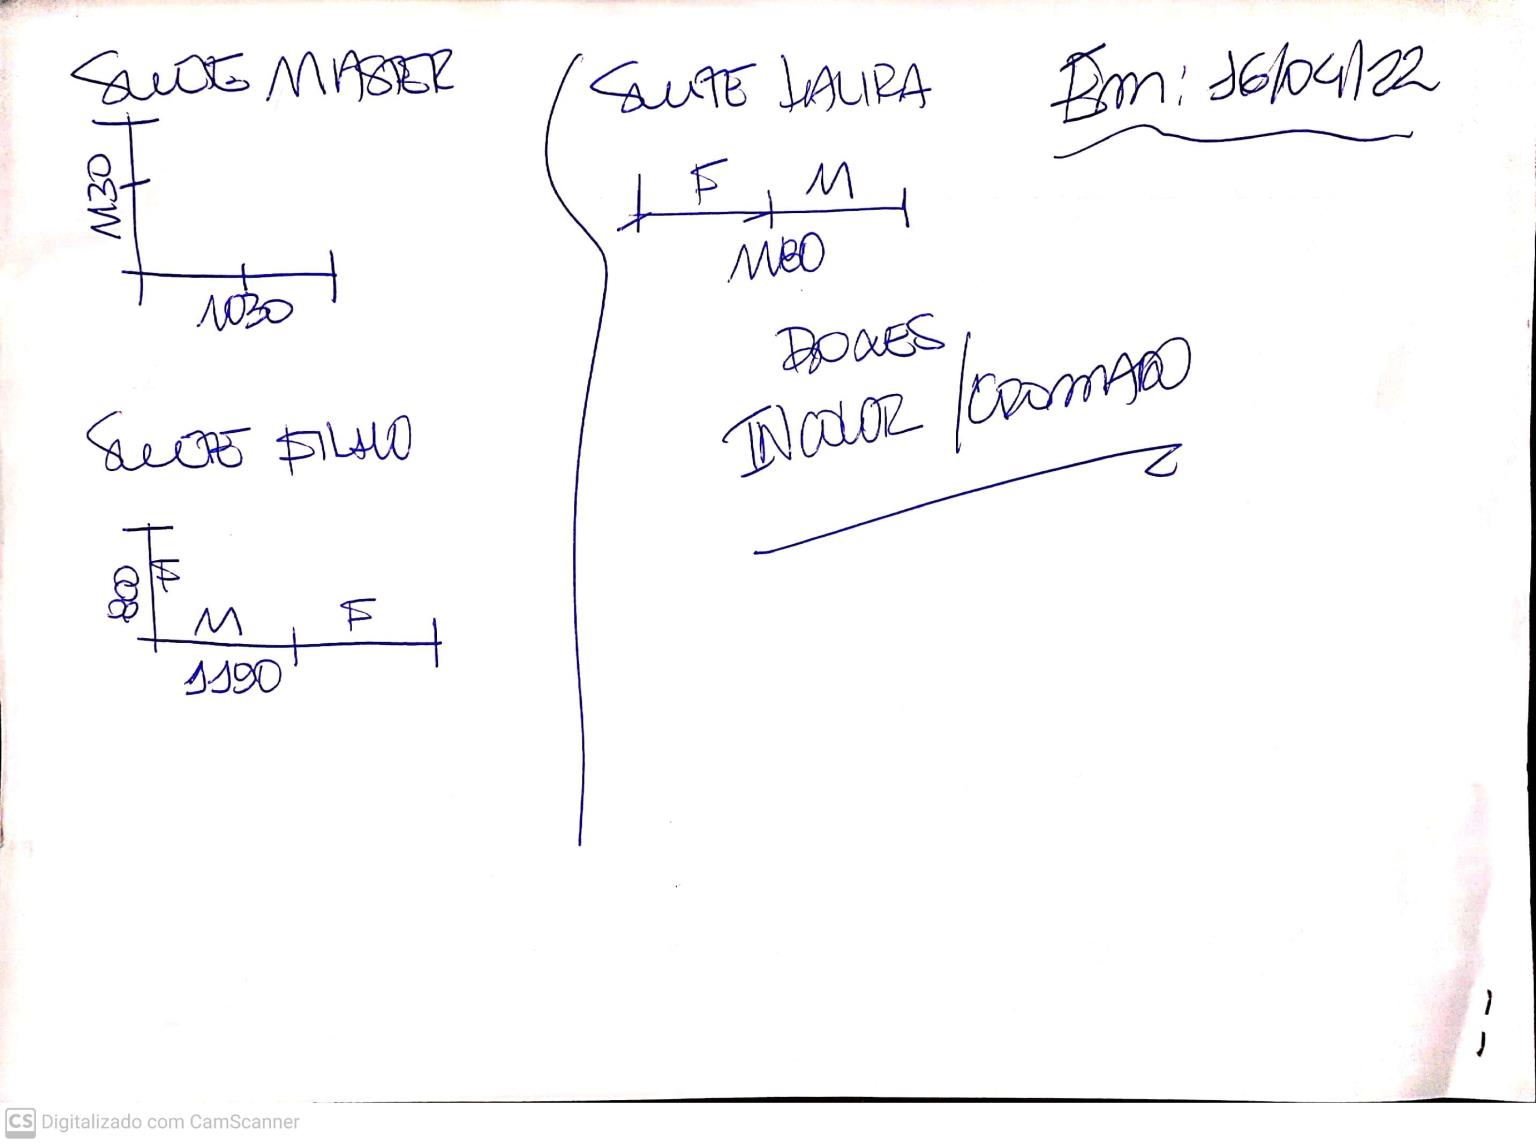 SUITE MASTER
1130
1030
SUITE FILHO
800
F
M F
1190
SUITE LAURA
F M
1180
BOXES
INCOLOR / CROMADO
Em: 16/04/22
CS Digitalizado com CamScanner